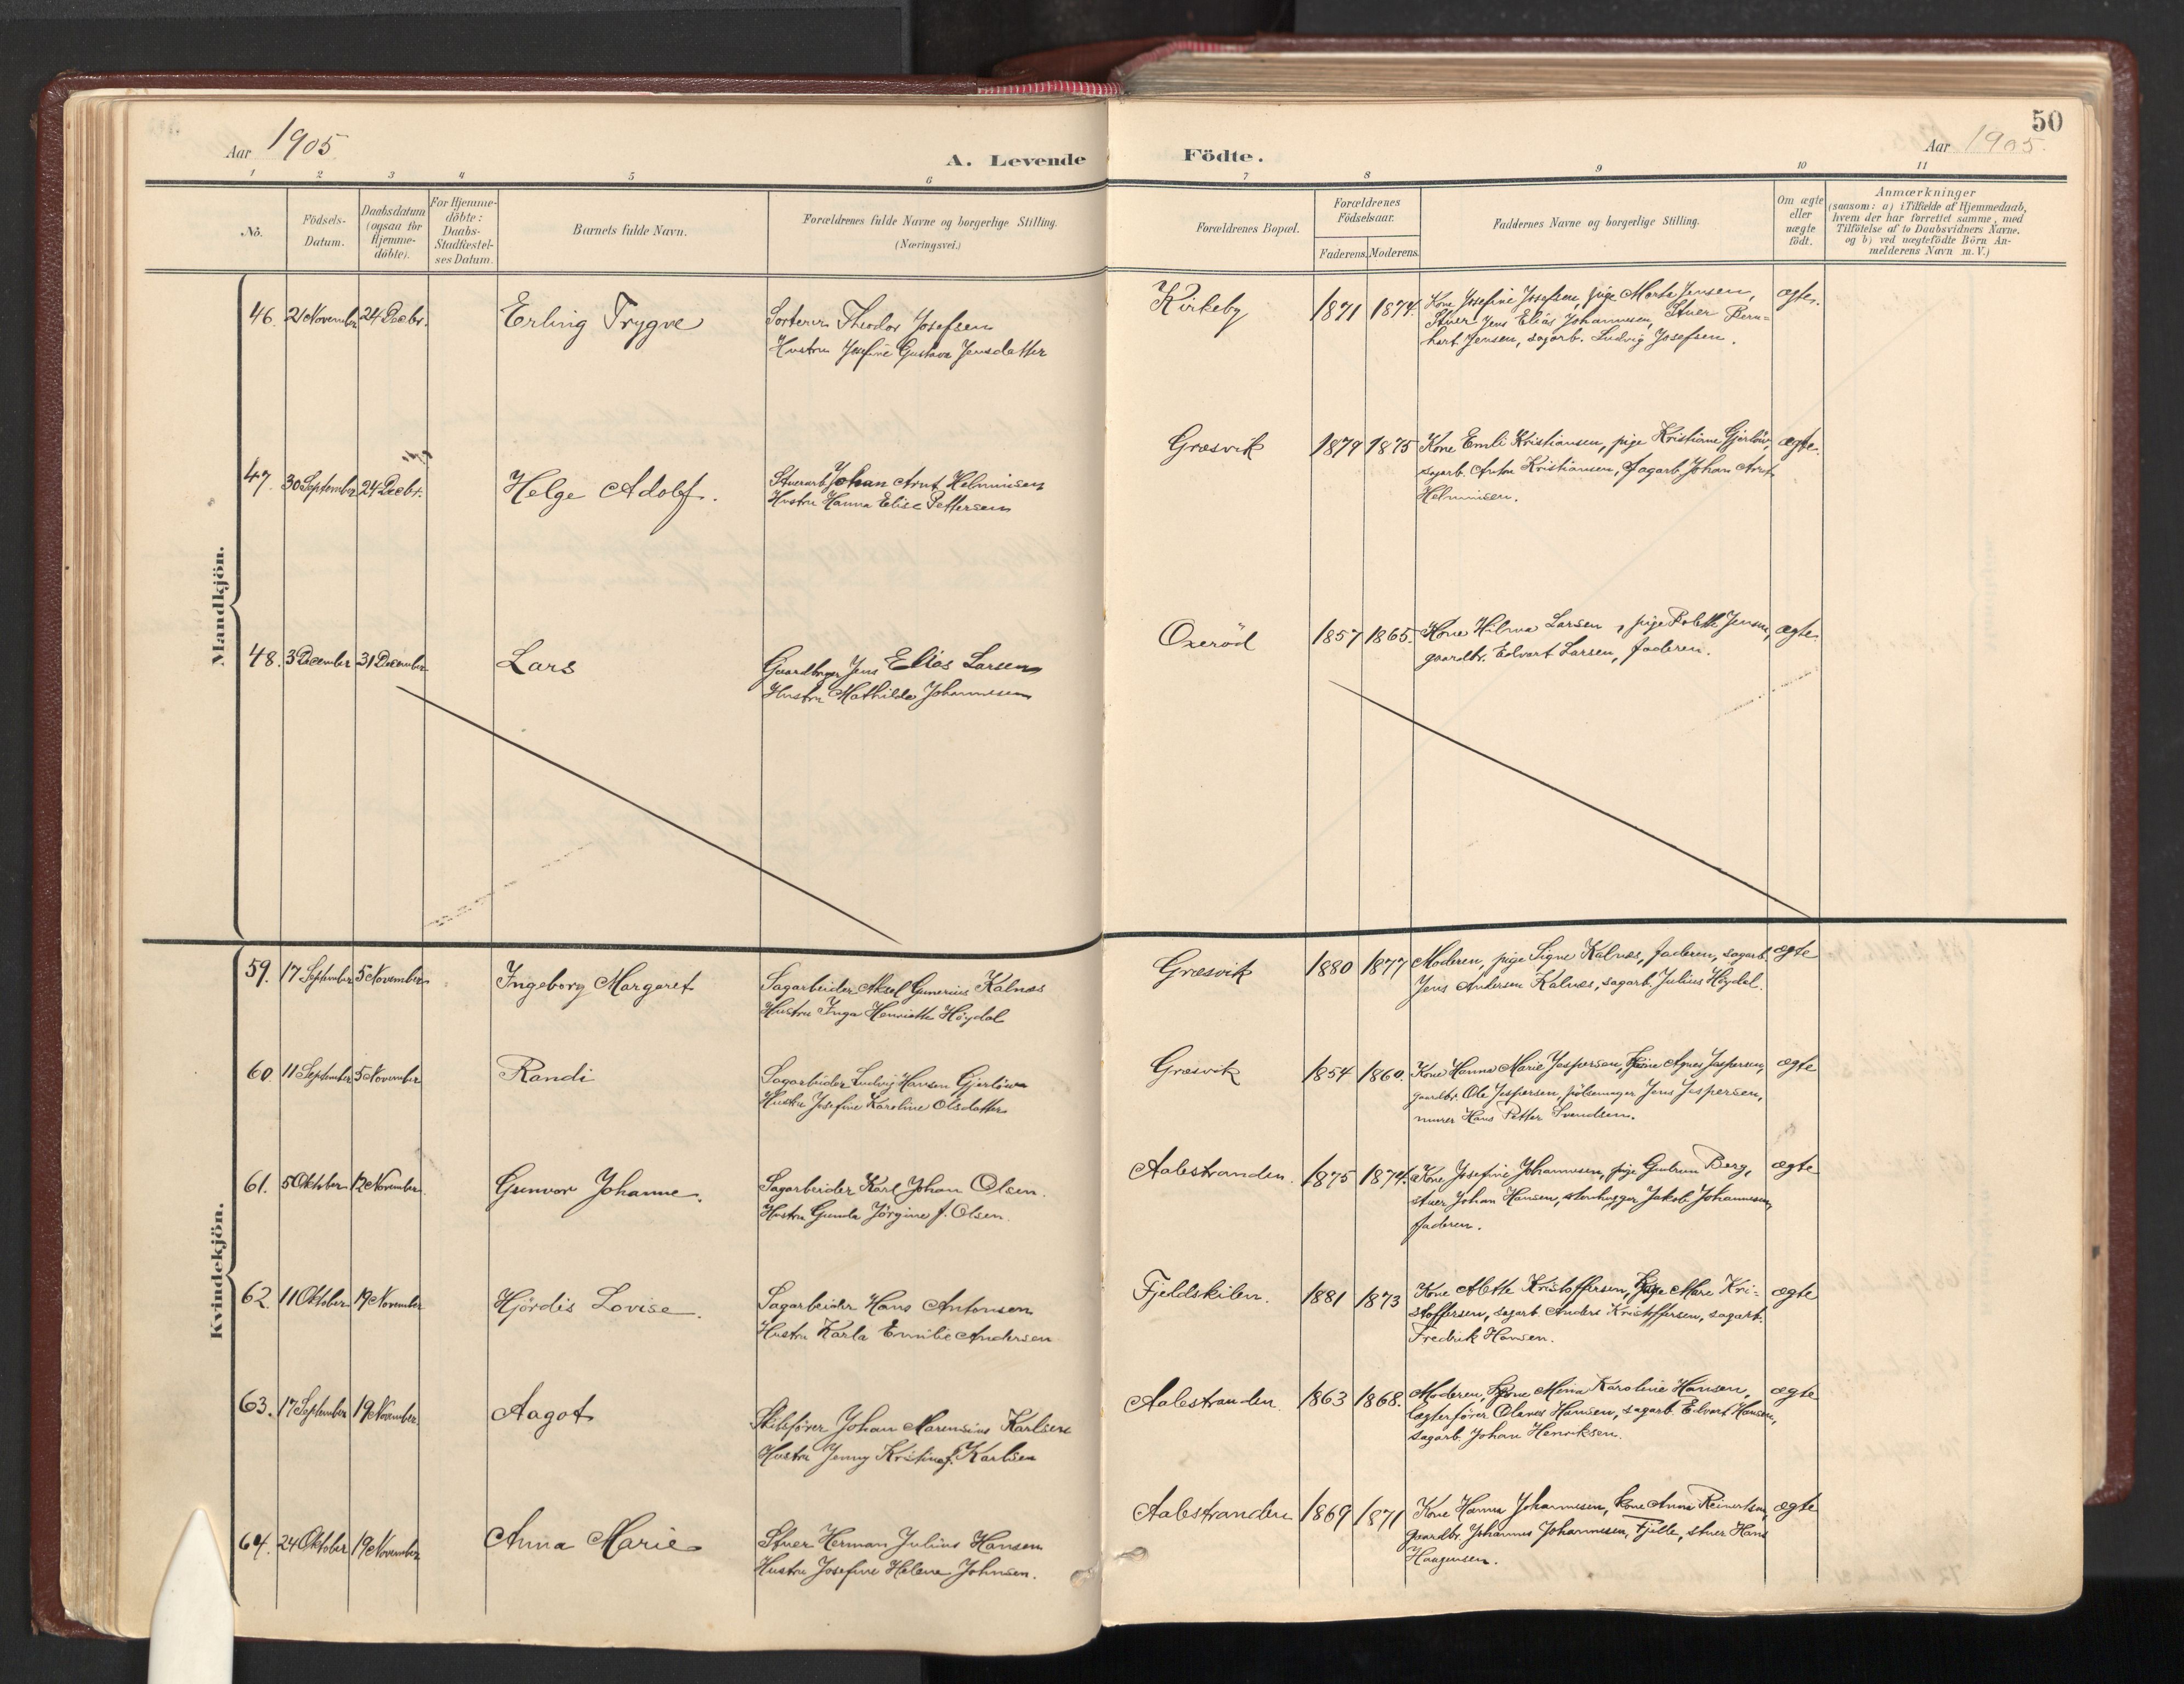 50
Aar 1905
A. Levende Födte.
Aar 1905.
1 2 3 4 5 6 7 8 9 10 11
No.
Födsels-
Datum.
Daabsdatum
(ogsaa for
Hjemme-
döbte).
For Hjemme-
döbte:
Daabs-
Stadfæstel-
ses Datum.
Barnets fulde Navn.
Forældrenes fulde Navne og borgerlige Stilling.
(Næringsvei.)
Forældrenes Bopæl.
Forældrenes
Födselsaar.
Faderens. Moderens.
Faddernes Navne og borgerlige Stilling.
Om ægte
eller
uægte
födt.
Anmærkninger
(saasom: a) i Tilfælde af Hjemmedaab,
hvem der har forrettet samme, med
Tilföielse af to Daabsvidners Navne.
og b) ved uægtefödte Börn An-
melderens Navn m. V.)
Mandkjön.
46. 21 November 24 Decbr. Erling Trygve
Sorterer Theodor Josefsen
Hustru Josefine Gustava Jensdatter
Kirkeby 1871 1874.
Kone Josefine Josefsen, pige Marta Jensen,
Stuer Jens Elias Johannesen, Stuer Bern-
hart Jensen, sagarb. Ludvig Josefsen.
ægte.
47. 30 September 24 Decbr. Helge Adolf.
Stuerarb. Johan Arnt Helminsen
Hustru Hanna Elise Pettersen
Græsvik 1879 1875
Kone Emli Kristiansen, pige Kristiane Gjerløw,
sagarb. Anton Kristiansen, sagarb. Johan Arnt
Helminsen.
ægte.
48. 3 December 31 December Lars
Gaardbruger Jens Elias Larsen
Hustru Mathilde Johannesen
Oxeröd 1857 1865.
Kone Hilma Larsen, pige Bolette Jensen,
gaardbr. Edvart Larsen, faderen.
ægte.
Kvindekjön.
59. 17 September 5 November Ingeborg Margaret
Sagarbeider Aksel Gunerius Kalnæs
Hustru Inga Henriette Höydal
Græsvik 1880 1877
Moderen, pige Signe Kalnæs, faderen, sagarb.
Jens Andersen Kalnæs, sagarb. Julius Höydal.
ægte
60. 11 September 5 November Randi
Sagarbeider Ludvig Hansen Gjerløw
Hustru Josefine Karoline Olsdatter
Græsvik 1854 1860.
Kone Hanna Marie Jespersen, Kone Agnes Jespersen,
gaardbr. Ole Jespersen, pölsemager Jens Jespersen,
murer Hans Petter Svendsen.
ægte
61. 5 Oktober 12 November Gunvor Johanne.
Sagarbeider Karl Johan Olsen.
Hustru Gunda Jörgine f. Olsen.
Aalestranden. 1875 1874.
Kone Josefine Johannesen, pige Gudrun Berg,
stuer Johan Hansen, stenhugger Jakob Johannesen,
faderen.
ægte
62. 11 Oktober 19 November Hjördis Lovise.
Sagarbeider Hans Antonsen
Hustru Karla Emilie Andersen
Fjeldskilen. 1881 1873
Kone Mette Kristoffersen, pige Mare Kri-
stoffersen, sagarb. Anders Kristoffersen, sagarb.
Fredrik Hansen.
ægte
63. 17 September 19 November Aagot
Skibsfører Johan Marensius Karlsen
Hustru Jenny Kristine f. Karlsen
Aalestranden. 1863 1868.
Moderen, Kone Mina Karoline Hansen,
lægterfører Olaves Hansen, sagarb. Edvart Hansen,
sagarb. Johan Henriksen.
ægte
64. 24 Oktober 19 November Anna Marie
Stuer Herman Julius Hansen
Hustru Josefine Helene Johnsen.
Aalestranden 1869 1871
Kone Hanna Johannesen, kone Anna Reinertsen,
gaardbr. Johannes Johannesen, Fjelle, stuer Hans
Haagensen.
ægte